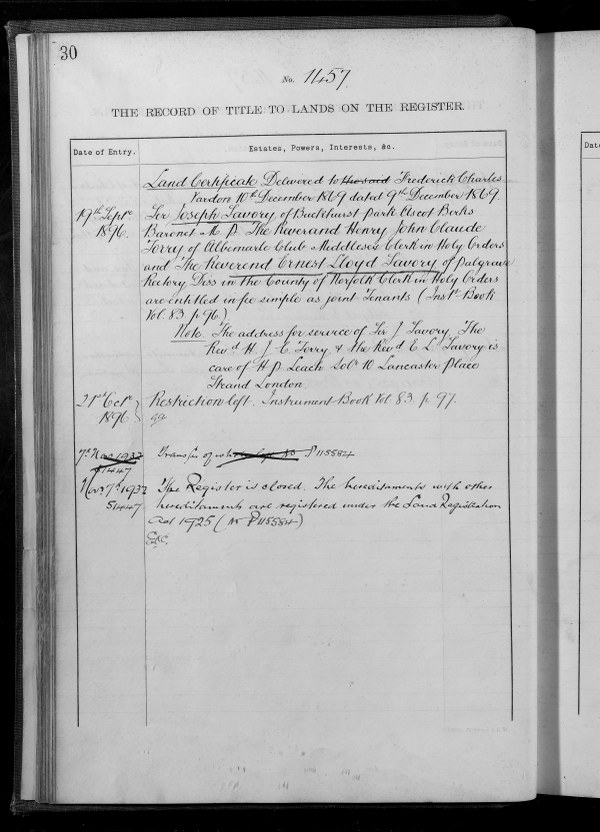 30
No. 1457.
THE RECORD OF TITLE TO LANDS ON THE REGISTER.
Date of Entry.
Estates, Powers, Interests, &c.
Land Certificate Delivered to the said Frederick Charles
Vardon 10th December 1869 dated 9th December 1869.
19th Septr 1896.
Sir Joseph Savory of Buckhurst Park Ascot Berks
Baronet M P The Reverand Henry John Claude
Torry of Albemarle Club Middlesex Clerk in Holy Orders
and The Reverend Ernest Lloyd Savory of Palgrave
Rectory Diss in the County of Norfolk Clerk in Holy Orders
are entitled in fee simple as joint Tenants (Inst. Book
Vol. 83. p 96).
Note. The address for service of Sir J Savory, The
Revd H. J C Torry & the Revd E L Savory is
care of H P Leach Solr 10 Lancaster Place
Strand London.
21st Octr 1896
Restriction left. Instrument Book Vol 83. p 97.
7th Nov 1932
51447
Transfer of P 115584
Novr 7th 1932
51447
The Register is closed. The hereditaments with other
hereditaments are registered under the Land Registration
Act 1925 (No P 115584)